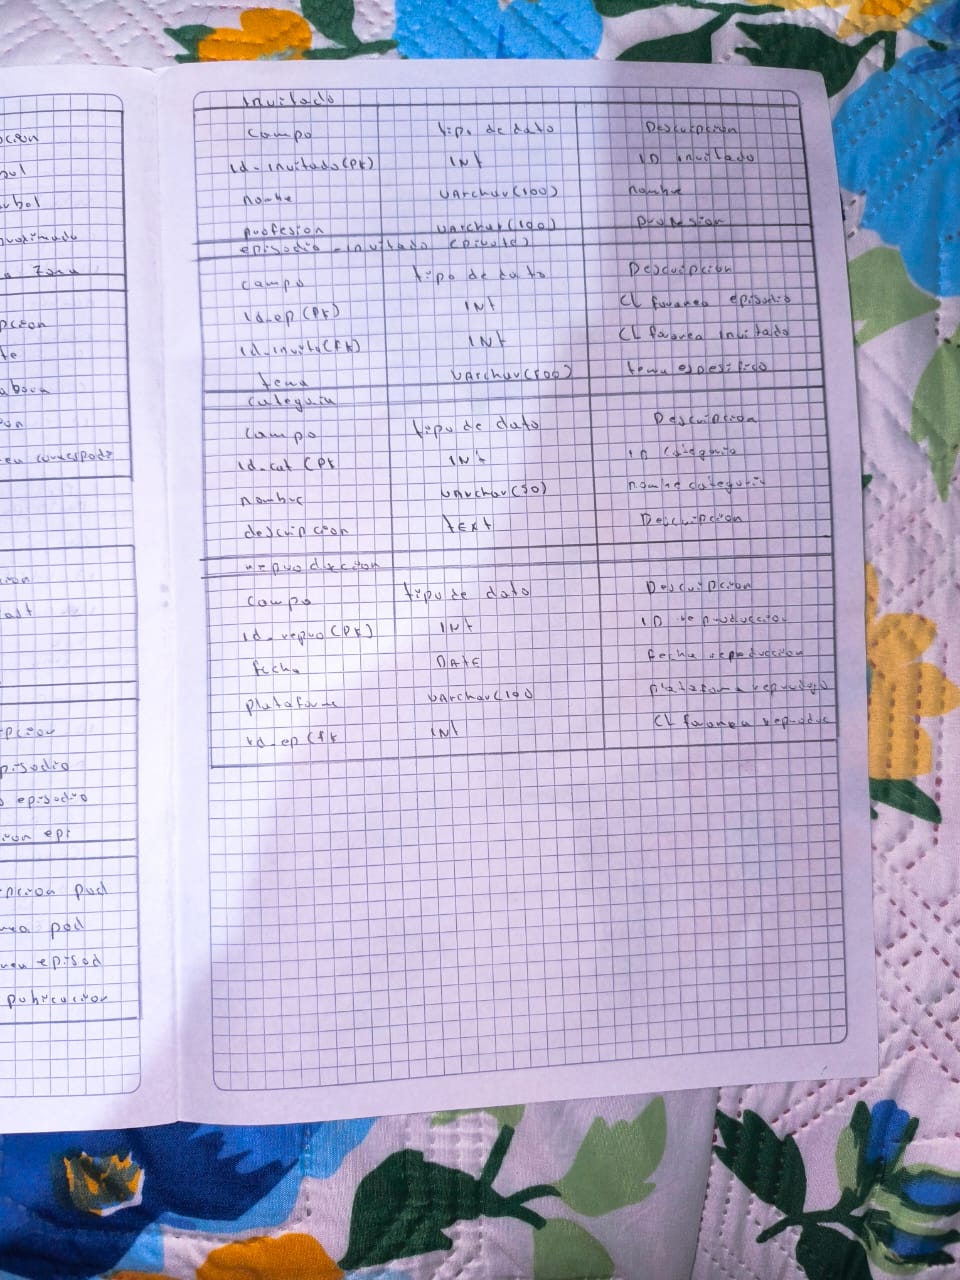 ocion
bol
arbol
aproximado
a zona
pcion
te
labora
ón
rea correspode
ion
ast
pcion
pisodio
o episodio
ion epi
pcion pod
nea pod
episod
publicacion
Invitado
campo tipo de dato Descripcion
id-invitado(PK) INt ID invitado
nombe VArchar(100) nombre
profesion VArchar(100) profesion
episodio-invitado (pivote)
campo tipo de dato Descripcion
id_ep(Pk) INt CL foranea episodio
id-invita(Fk) INt CL foranea invitado
tema VArchar(500) tema espesifico
categoria
campo tipo de dato Descripcion
id-cat (PK INt ID categoria
nombre VArchar(50) nombre categoria
descripcion tEXt Descripcion
reproduccion
campo tipo de dato Descripcion
id_repro(PK) INt ID reproduccion
fecha DAtE fecha reproduccion
plataforma VArchar(100 plataforma
id_ep(fk INt CL foranea reproduc